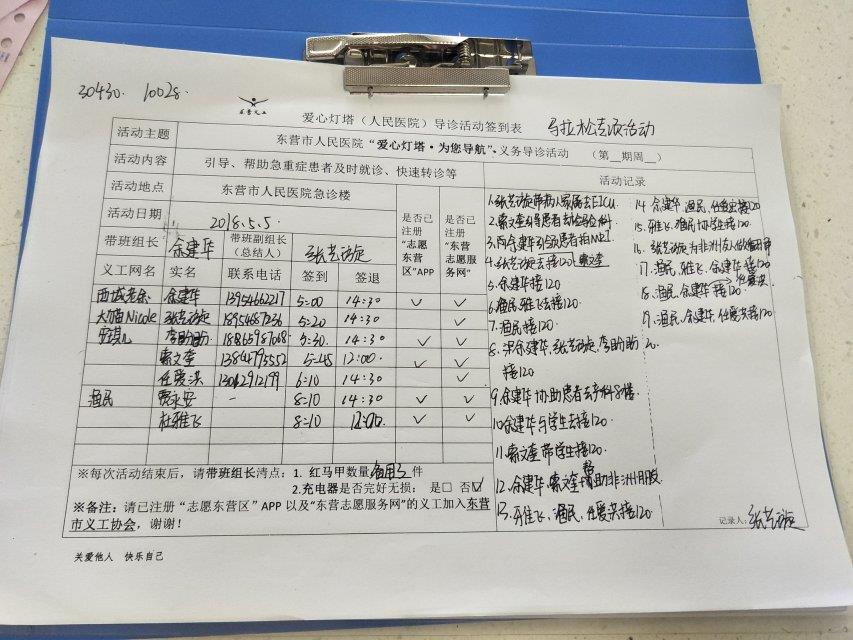 30430. 10028.
东营义工
爱心灯塔（人民医院）导诊活动签到表 马拉松支援活动
活动主题 东营市人民医院 “爱心灯塔·为您导航”、义务导诊活动 （第 期周 ）
活动内容 引导、帮助急重症患者及时就诊、快速转诊等
活动地点 东营市人民医院急诊楼
活动日期 2018.5.5.
带班组长 余建华 带班副组长（总结人） 张艺璇
是否已注册“志愿东营区”APP
是否已注册“东营志愿服务网”
义工网名 实名 联系电话 签到 签退
西域老余 余建华 13954662217 5:00 14:30 ✓ ✓
大猫Nicole 张艺璇 1895487236 5:20 14:30 ✓
安琪儿 李盼盼 18865987068 5:30 14:30 ✓ ✓
索文奎 13864793552 5:45 12:00 ✓ ✓
任爱洪 13012912199 6:10 14:30 ✓
渔民 贾永安 - 8:10 14:30 ✓ ✓
杜雅飞 8:10 12:00 ✓ ✓
※每次活动结束后，请带班组长清点：1. 红马甲数量 备用3 件
2.充电器是否完好无损： 是□ 否☑
※备注：请已注册“志愿东营区”APP 以及“东营志愿服务网”的义工加入东营
市义工协会，谢谢！
关爱他人 快乐自己
活动记录
1.张艺璇带病人家属去EICU
2.索文奎引导患者去检验科
3.阿余建华引领患者拍MRI.
4.张艺璇去接120 索文奎
5.余建华接120
6.渔民雅飞去接120
7.渔民接120.
8.余建华、张艺璇、李盼盼
接120
9.余建华协助患者去产科8楼
10余建华与学生去接120.
11.索文奎带学生接120.
12.余建华、索文奎帮助非洲朋友
13.雅飞、渔民、任爱洪接120.
14.余建华、渔民、任爱洪接120
15.雅飞、渔民协学生接120
16.张艺璇为非洲友人做翻译
17.渔民、雅飞、余建华接120
18.渔民、余建华接120. 任爱洪
19.渔民、余建华、任爱洪接120
20.
记录人：张艺璇